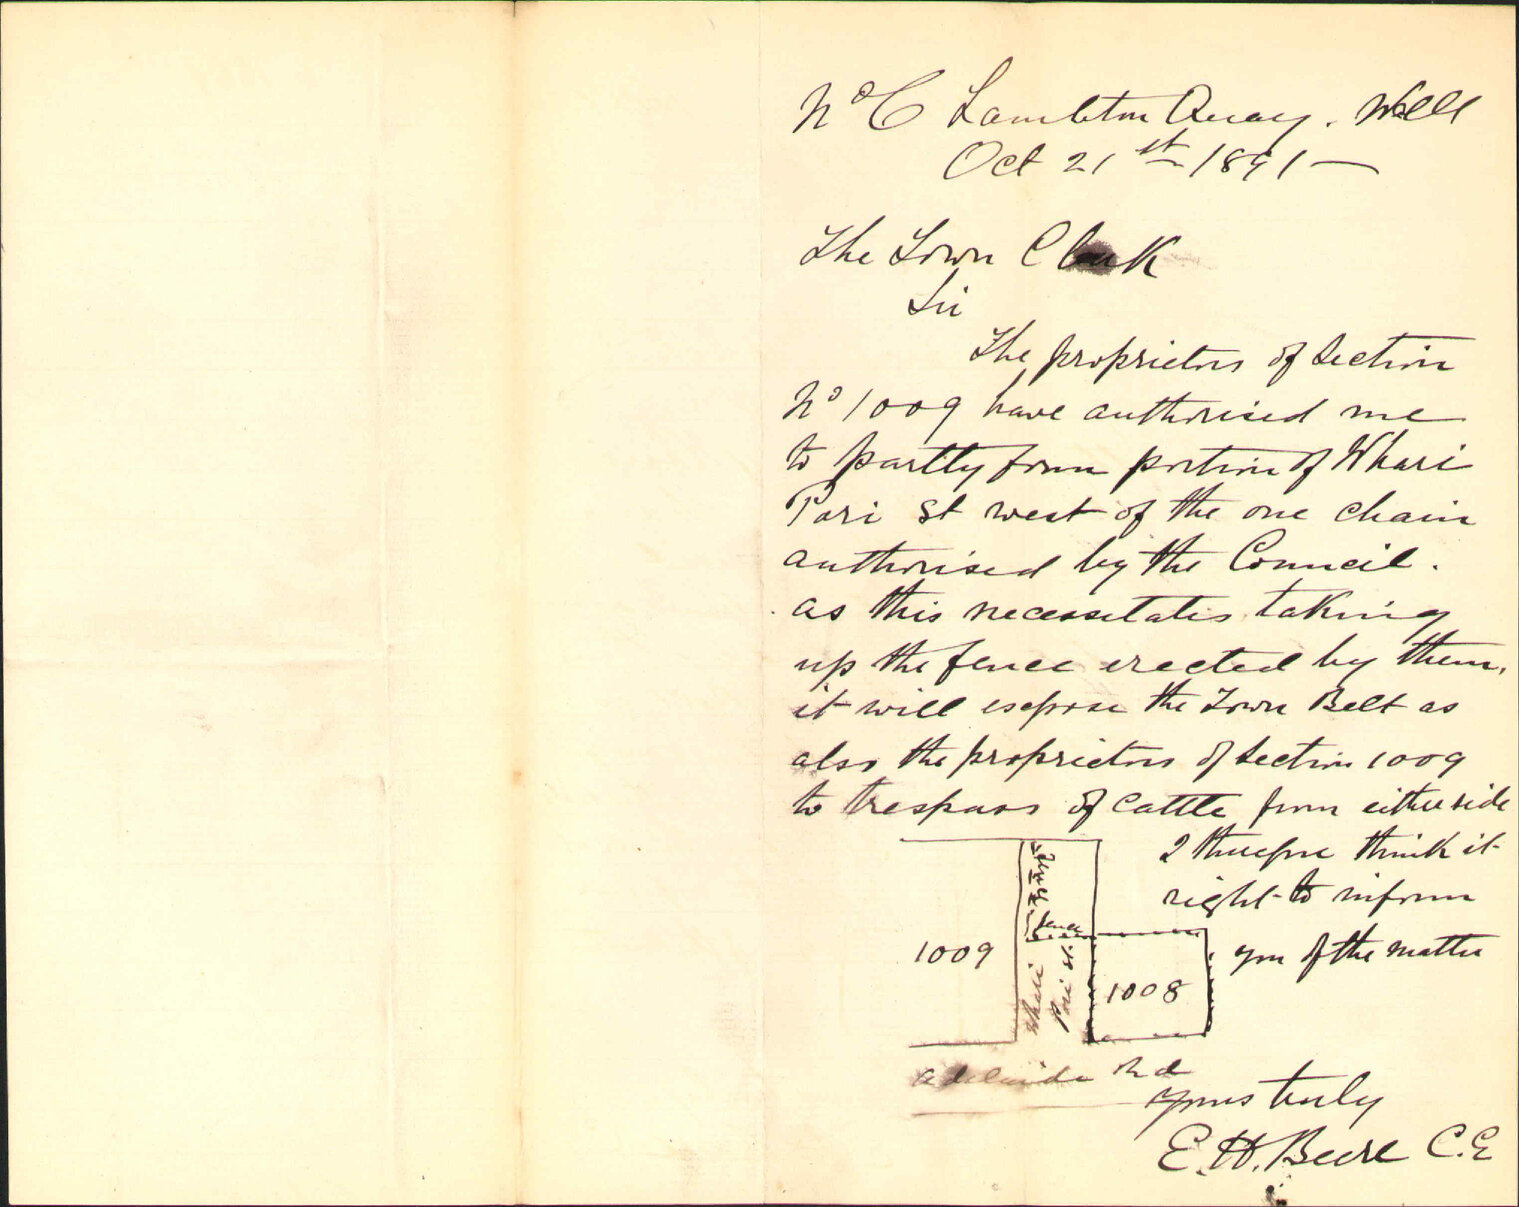 No C Lambton Quay. Well
Oct 21st 1891
The Town Clerk
Sir
The proprietors of Section
No 1009 have authorised me
to partly form portion of Whari
Pori St west of the one chain
authorised by the Council.
as this necessitates taking
up the fence erected by them,
it will expose the Town Belt as
also the proprietors of Section 1009
to trespass of Cattle from either side
I therefore think it
right to inform
you of the matter
fence
1009
Whari
Pori St.
1008
Adelaide Rd
Yours truly
E. H. Beere C.E